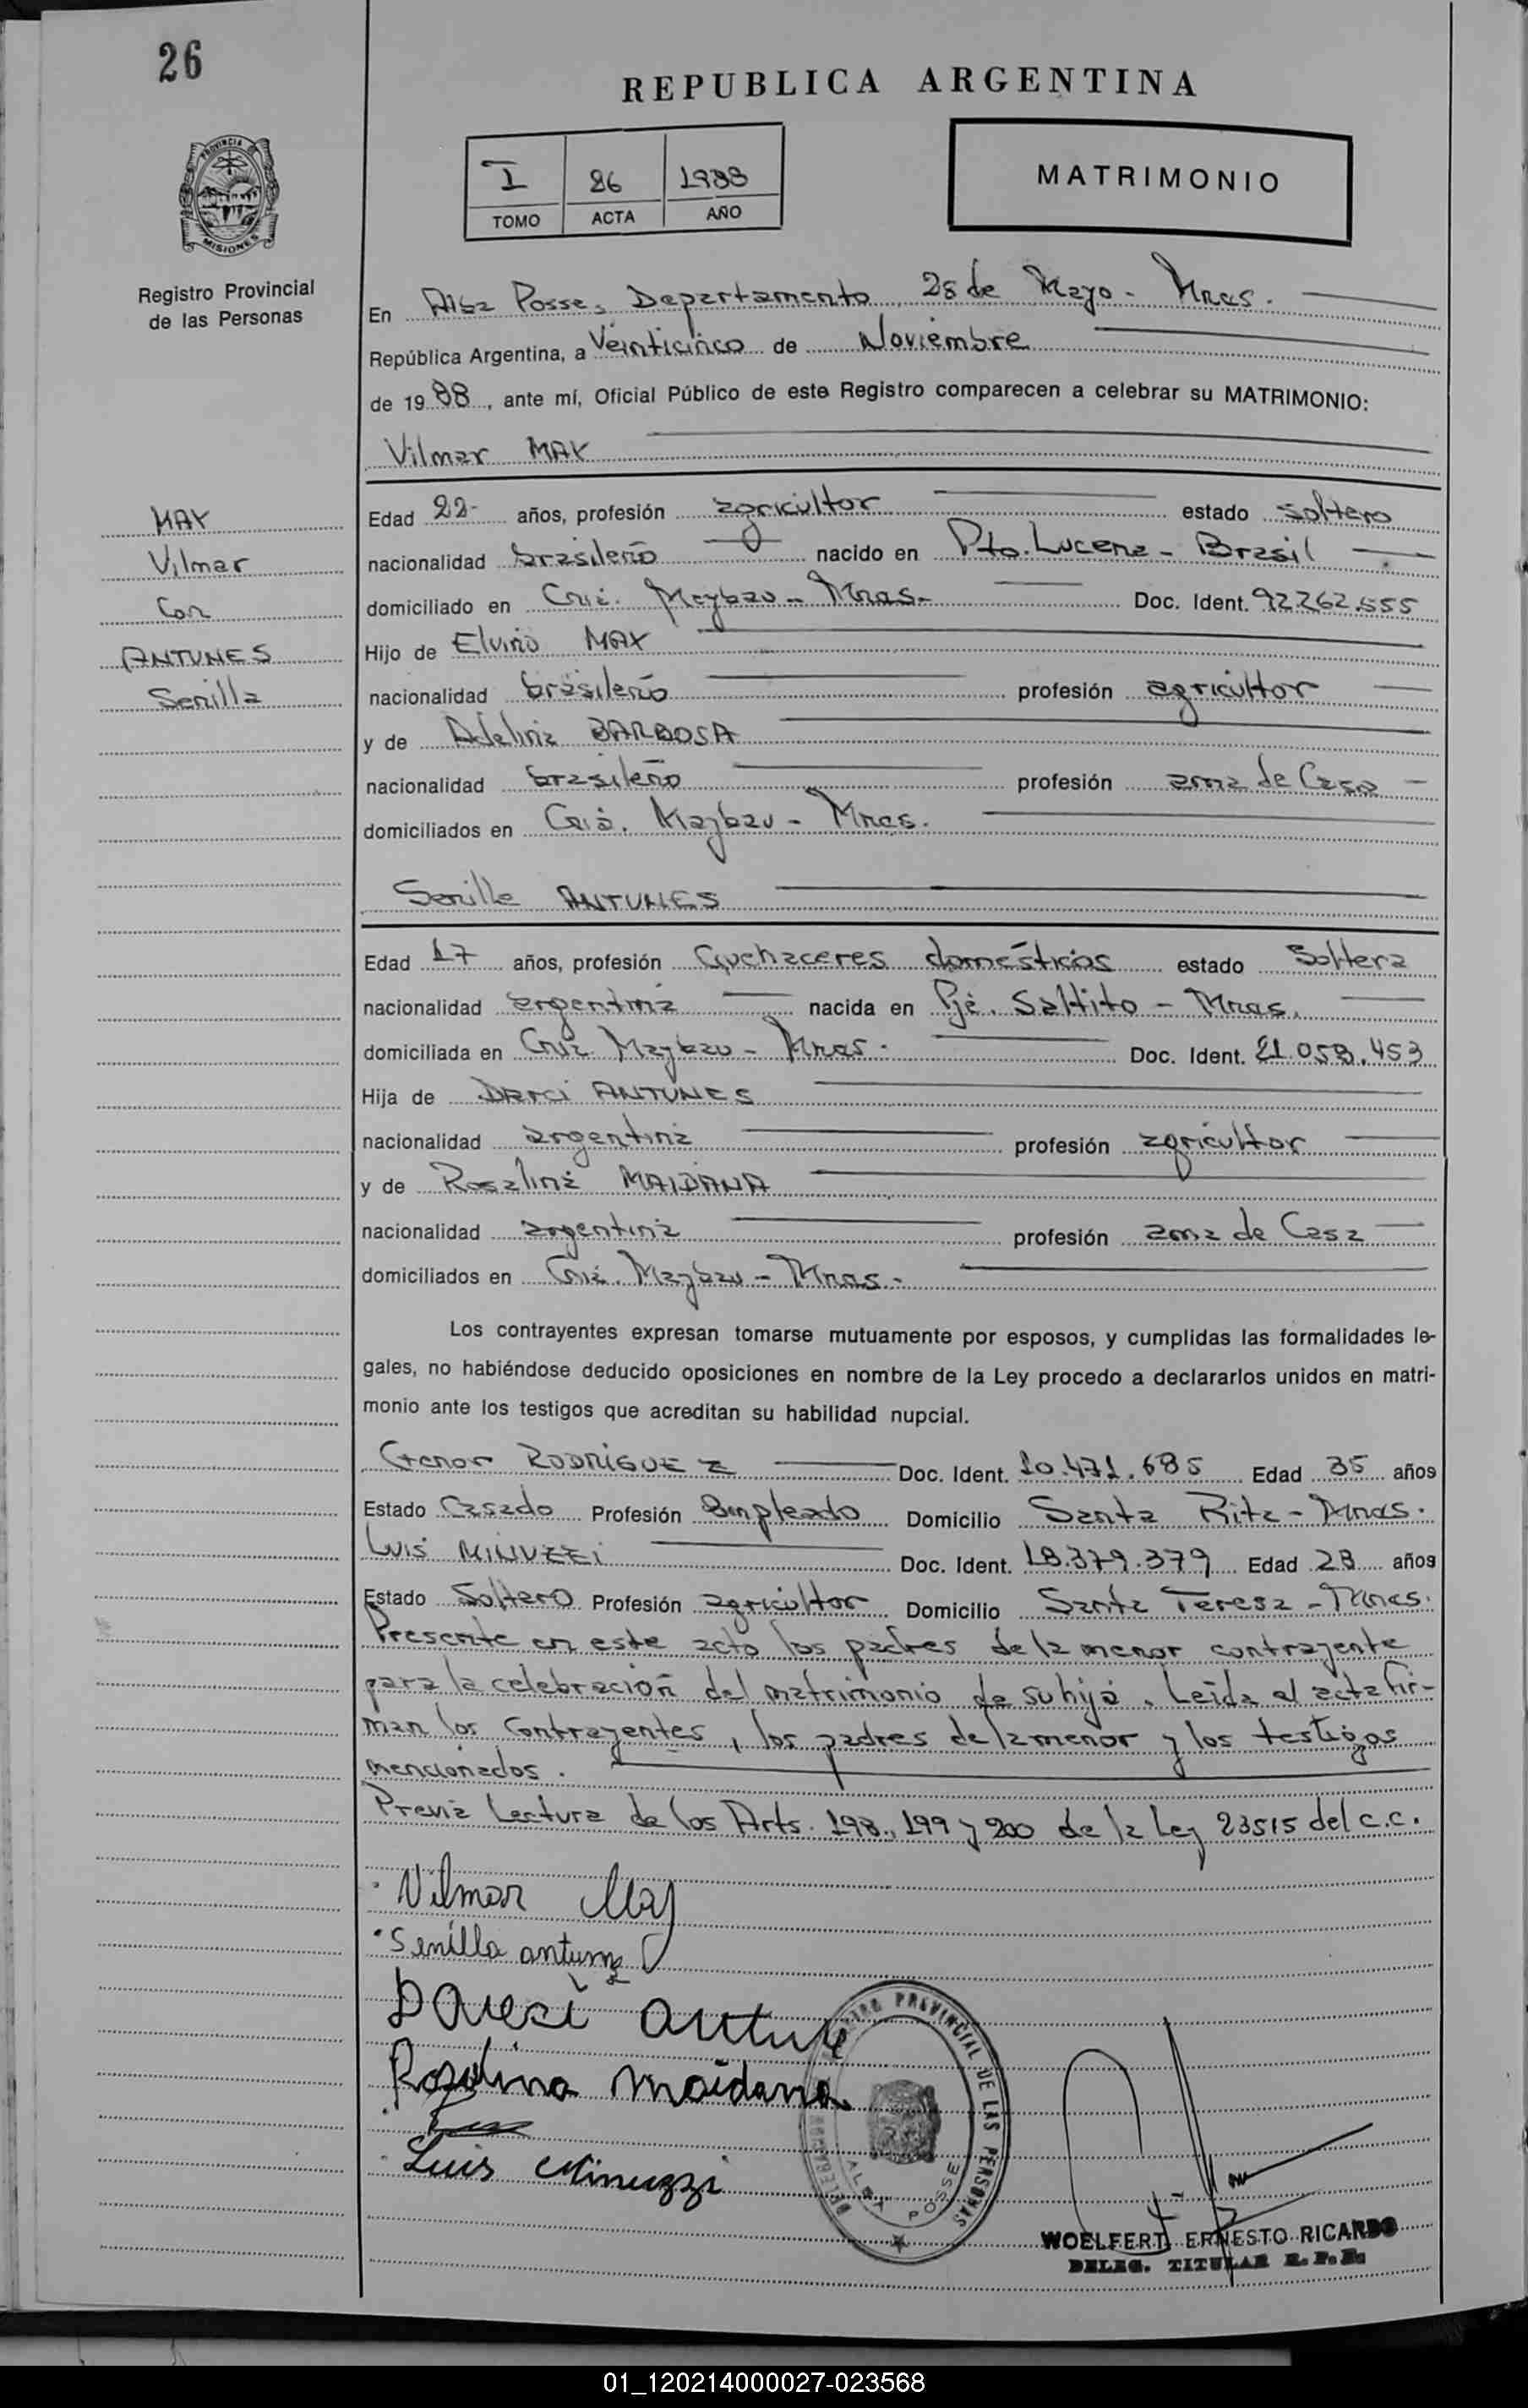 26
REPUBLICA ARGENTINA
PROVINCIA DE
MISIONES
Registro Provincial
de las Personas
I 26 1988
TOMO ACTA AÑO
MATRIMONIO
En Alba Posse, Departamento 25 de Mayo - Mnes.
República Argentina, a Veinticinco de Noviembre
de 1988, ante mí, Oficial Público de este Registro comparecen a celebrar su MATRIMONIO:
Vilmar MAY
MAY
Vilmar
Con
ANTUNES
Senilla
Edad 22 años, profesión agricultor estado soltero
nacionalidad brasileño nacido en Pto. Lucena - Brasil
domiciliado en Cnia. Maybau - Mnas. Doc. Ident. 92262.555
Hijo de Elvino MAY
nacionalidad brasileño profesión agricultor
y de Adelina BARBOSA
nacionalidad brasileño profesión ama de Casa
domiciliados en Cnia. Maybau - Mnes.
Senilla ANTUNES
Edad 17 años, profesión Quehaceres domésticos estado Soltera
nacionalidad argentina nacida en Pje. Saltito - Mnas.
domiciliada en Cnia. Maybau - Mnas. Doc. Ident. 21.058.453
Hija de Darci ANTUNES
nacionalidad argentina profesión agricultor
y de Rosalina MAIDANA
nacionalidad argentina profesión ama de Casa
domiciliados en Cnia. Maybau - Mnas.
Los contrayentes expresan tomarse mutuamente por esposos, y cumplidas las formalidades le-
gales, no habiéndose deducido oposiciones en nombre de la Ley procedo a declararlos unidos en matri-
monio ante los testigos que acreditan su habilidad nupcial.
Genor RODRIGUEZ Doc. Ident. 10.471.685 Edad 35 años
Estado Casado Profesión Empleado Domicilio Santa Rita - Mnas.
Luis MINUZZI Doc. Ident. 18.379.379 Edad 23 años
Estado Soltero Profesión agricultor Domicilio Santa Teresa - Mnes.
Presente en este acto los padres de la menor contrayente
para la celebración del matrimonio de su hija. Leída el acta fir-
man los Contrayentes, los padres de la menor y los testigos
mencionados.
Previa Lectura de los Arts. 198, 199 y 200 de la Ley 23515 del c.c.
Vilmar May
Senilla antunes
Darci antune
Rosalina maidana
Luis Minuzzi
PROVINCIAL DE LAS PERSONAS
ALBA POSSE
WOELFERT ERNESTO RICARDO
DELEG. TITULAR R. P. P.
01_120214000027-023568